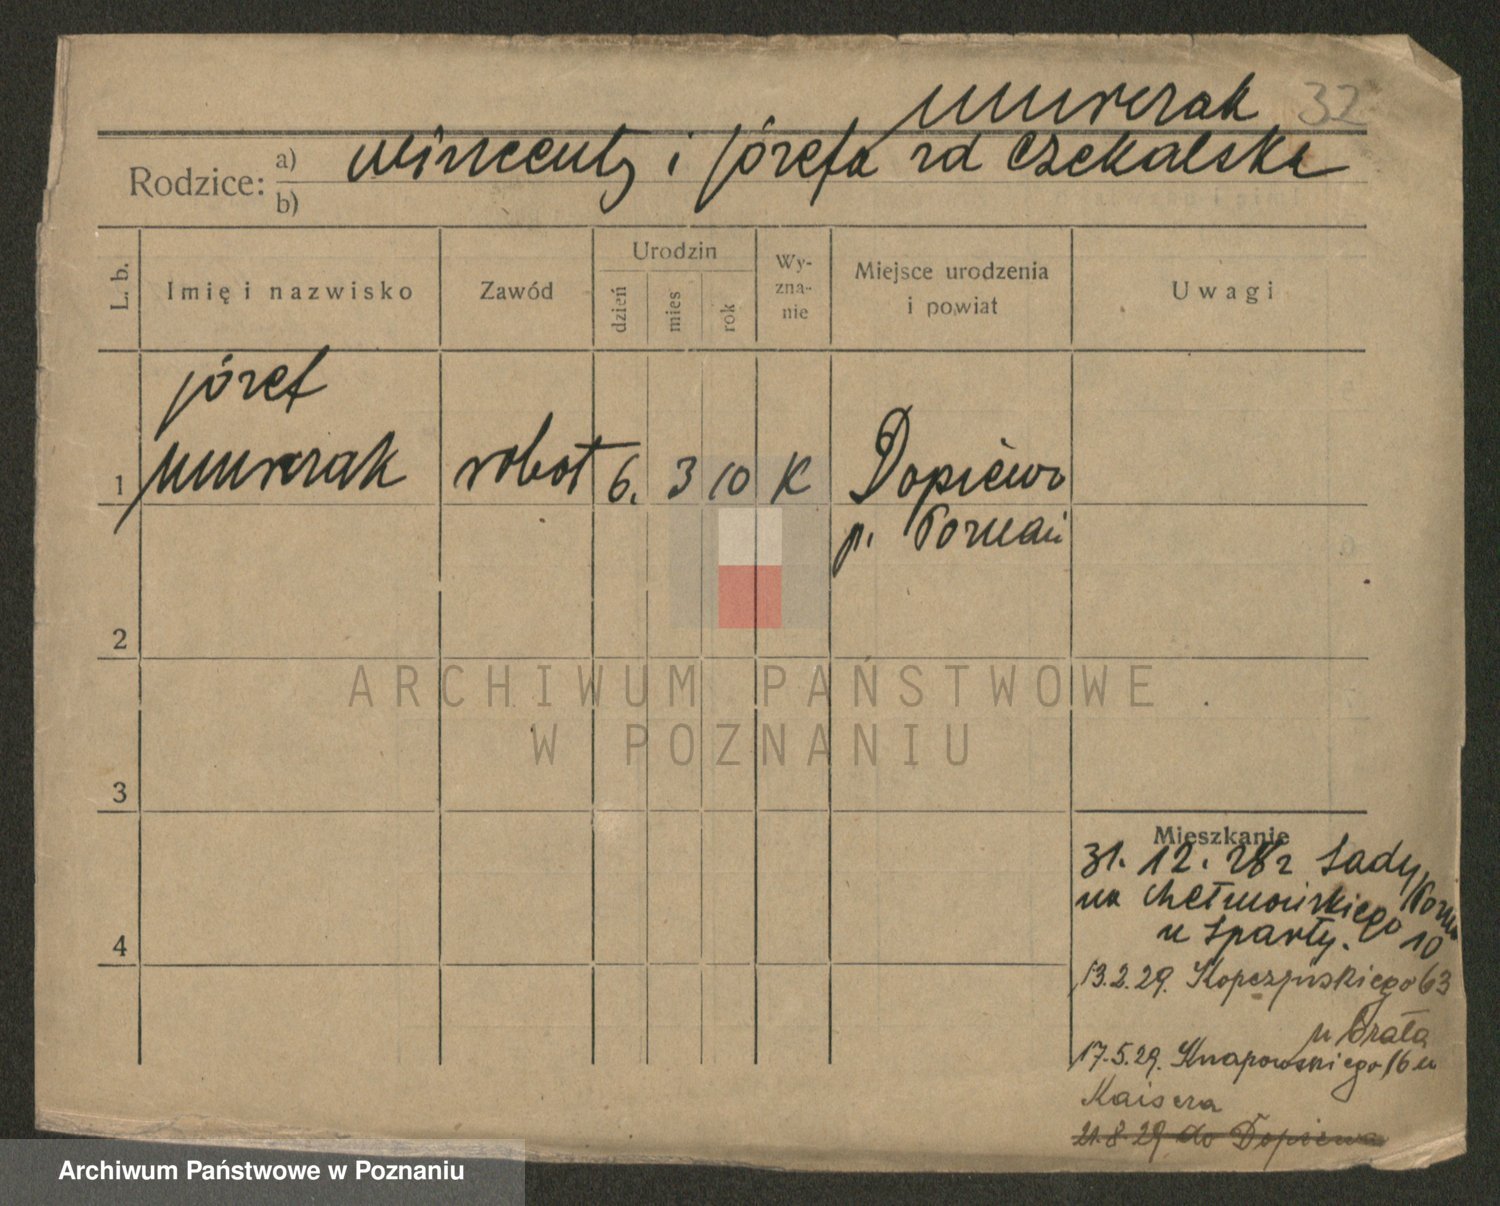 Murczak 32
Rodzice: a) Wincenty i Józefa zd Czekalska
b)
L. b.
Imię i nazwisko
Zawód
Urodzin
dzień
mies
rok
Wy-
zna-
nie
Miejsce urodzenia
i powiat
Uwagi
Józef
1 Murczak robot 6. 3 10 K Dopiewo
p. Poznań
2
3
4
Mieszkanie
31. 12. 28 r Sady
na Chełmońskiego 10
u Sparty.
13.2.29. Kopczyńskiego 63
u Brata
17.5.29. Knapowskiego 16 u
Kaisera
21.8.29 do Dopiewa
ARCHIWUM PAŃSTWOWE
W POZNANIU
Archiwum Państwowe w Poznaniu